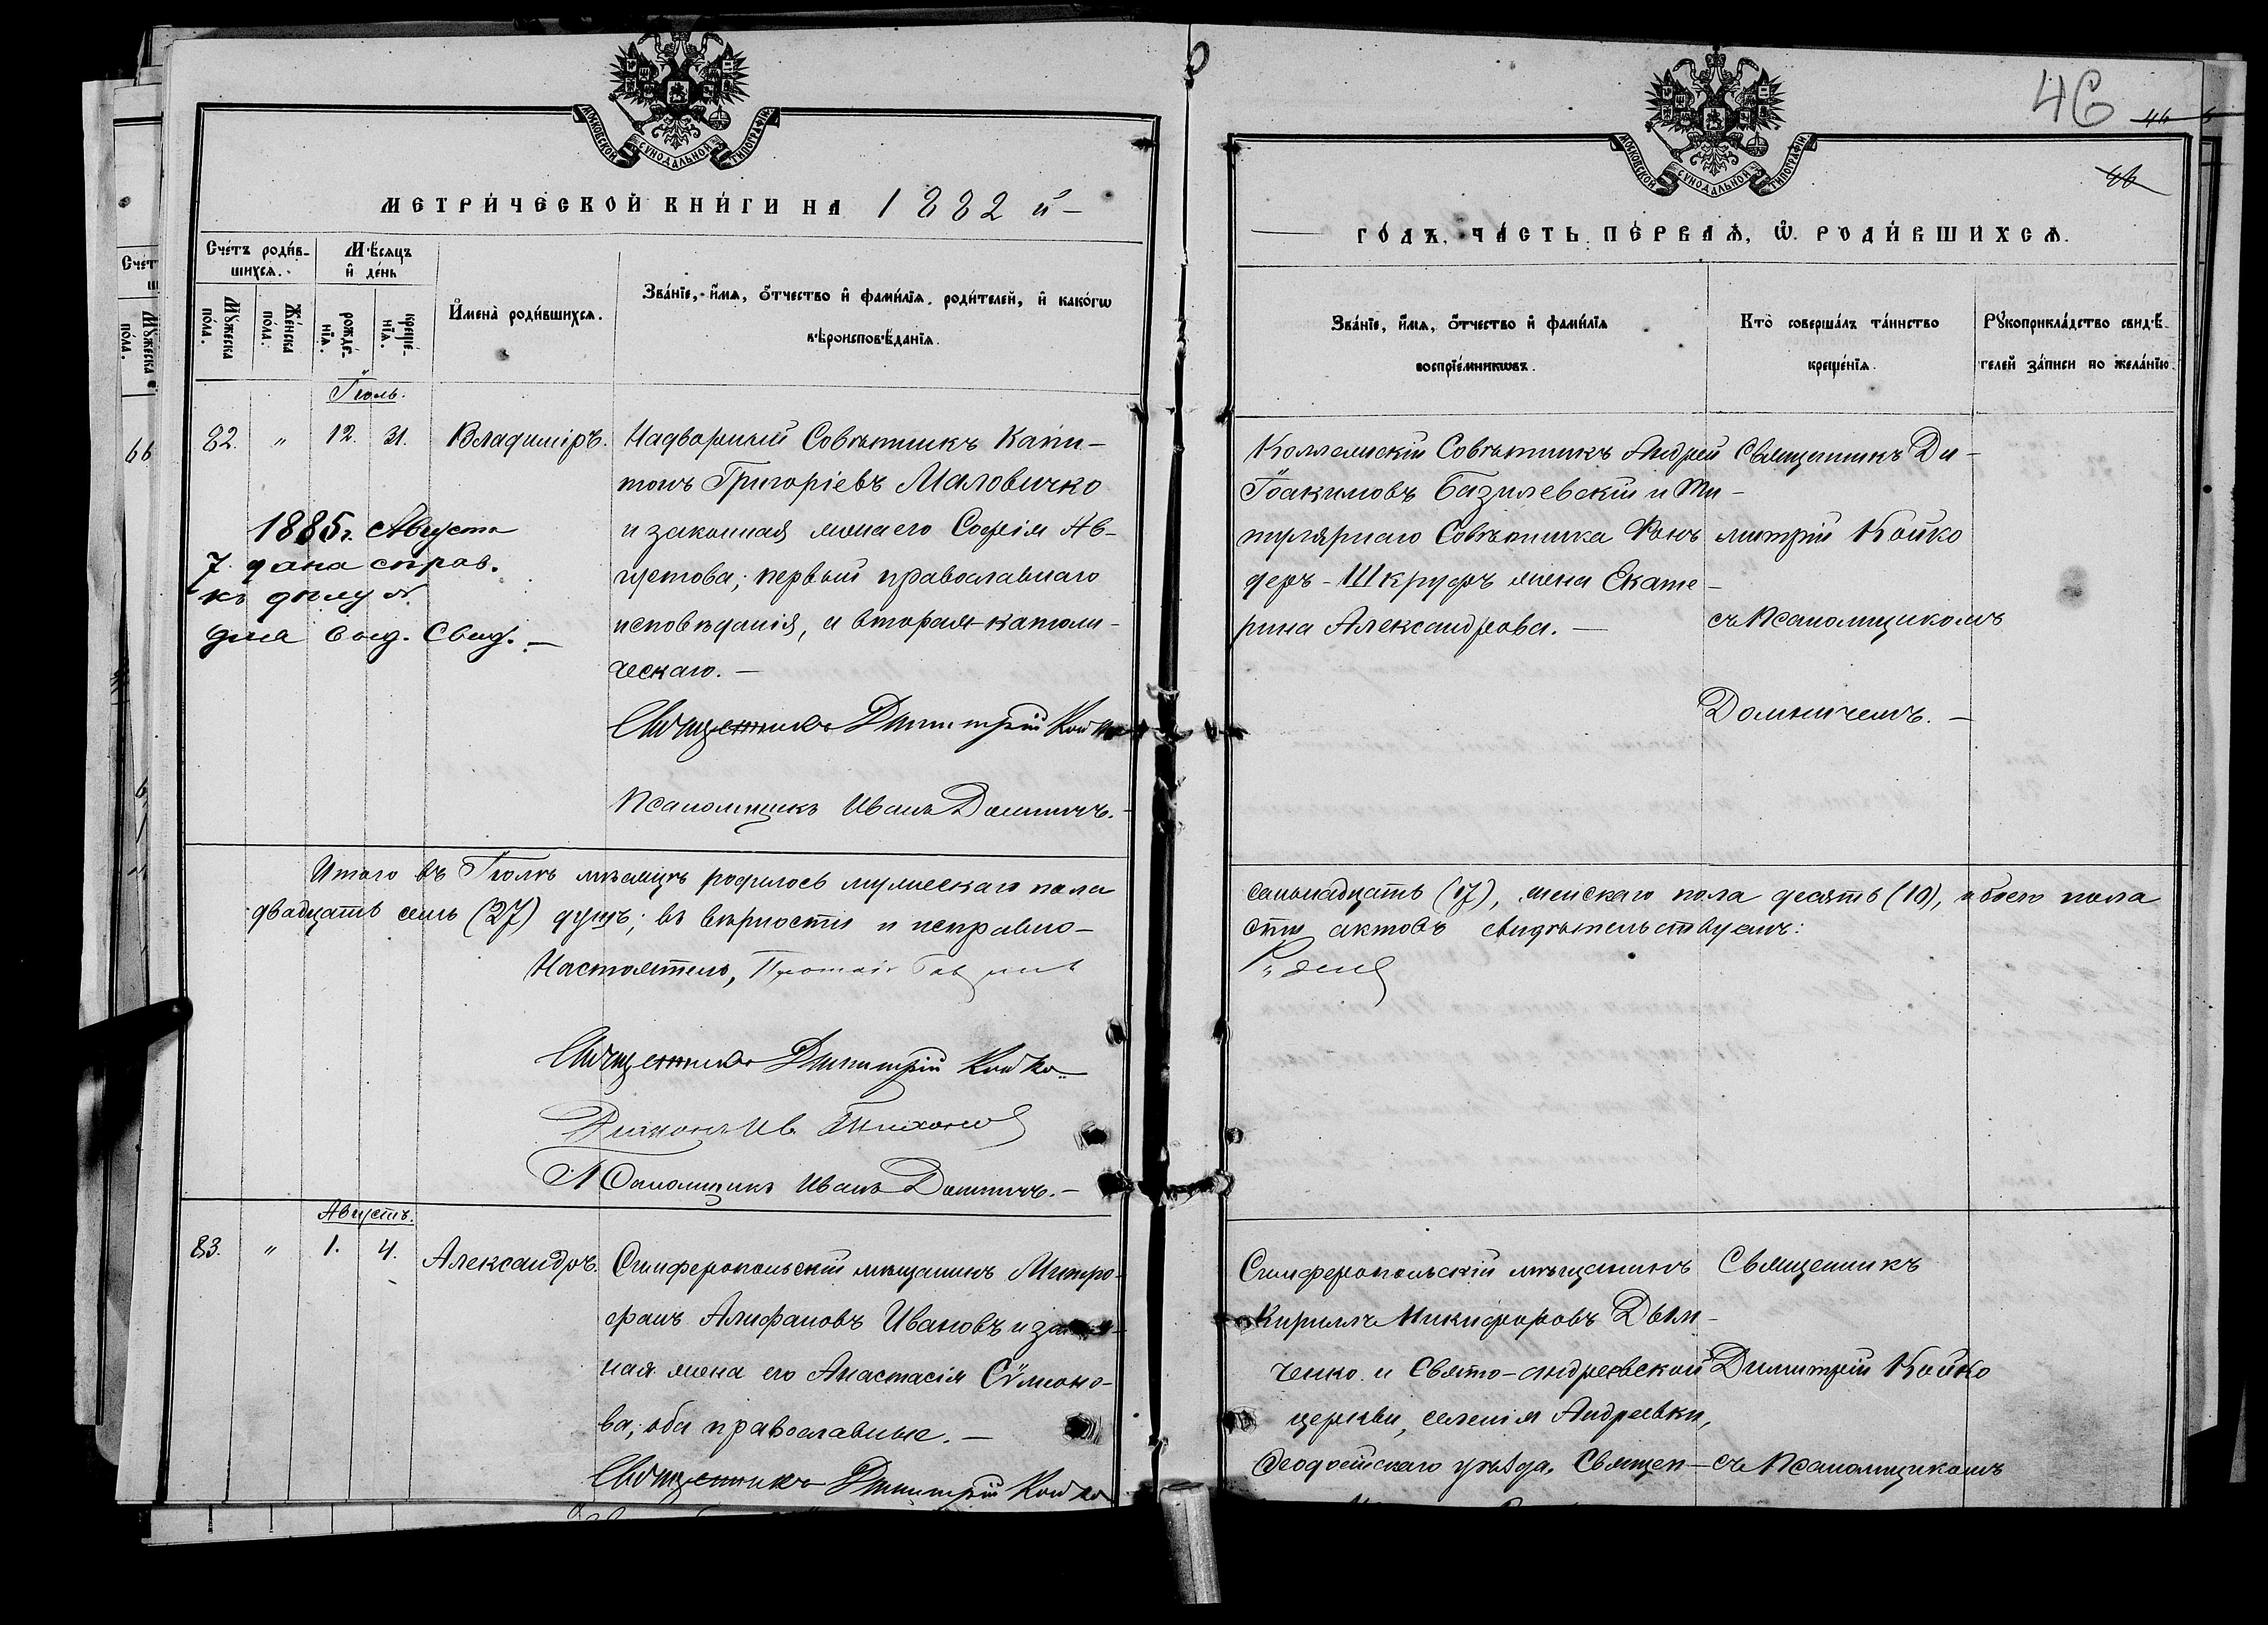 МОСКОВСКОЙ СѴНОДАЛЬНОЙ ТИПОГРАФІИ
МЕТРИ́ЧЕСКОЙ КНИ́ГИ НА 1882 й –
Сче́тъ роди́в-
шихся.
Мѣ́сяцъ
и҆ де́нь
Мꙋ́жеска
по́ла.
Же́нска
по́ла.
рожде́-
нїѧ.
креще́-
нїѧ.
И҆мена̀ роди́вшихсѧ.
Зва́нїе, и҆́мѧ, ѻ҆́тчество и҆ фами́лїѧ роди́телей, и҆ како́гѡ
вѣроисповѣ́данїѧ.
Іюль.
82. " 12. 31. Владиміръ.
Надворный Совѣтникъ Капи-
тонъ Григоріевъ Маловичко
и законная жена его Софія Ав-
густова; первый православнаго
исповѣданія, а вторая католи-
ческаго. —
Священникъ Димитрій Койко
Псаломщикъ Иванъ Домничъ. –
1885 г. Августа
7. дана справ.
къ дѣлу №
для выд. Свид. —
Итого въ Іюлѣ мѣсяцѣ родилось мужескаго пола
двадцать семь (27) душъ; въ вѣрности и исправно-
Настоятель,
Священникъ Димитрій Койко
Діаконъ Ив. Тихонов
Псаломщикъ Иванъ Домничъ. –
Августъ.
83. " 1. 4. Александръ.
Симферопольскій мѣщанинъ Митро-
фанъ Алифановъ Ивановъ и закон-
ная жена его Анастасія Сѵмеоно-
ва; оба православные. —
Священникъ Димитрій Койко
46
МОСКОВСКОЙ СѴНОДАЛЬНОЙ ТИПОГРАФІИ
ГО́ДЪ, ЧА́СТЬ ПЕ́РВАѦ, Ѡ҆ РОДИ́ВШИХСѦ.
Зва́нїе, и҆́мѧ, ѻ҆́тчество и҆ фами́лїѧ
воспрїе́мникѡвъ.
Кто̀ соверша́лъ та́инство
креще́нїѧ.
Рꙋкоприкла́дство свидѣ́-
телей за́писи по жела́нїю.
Коллежскій Совѣтникъ Андрей
Іоакимовъ Базилевскій и Ти-
тулярнаго Совѣтника Фонъ
деръ-Шкруфъ жена Екате-
рина Александрова. —
Священникъ Ди-
митрій Койко
съ Псаломщикомъ
Домничемъ. —
семьнадцать (17), женскаго пола десять (10), обоего пола
сти актовъ свидѣтельствуемъ:
Симферопольскій мѣщанинъ
Кириллъ Никифоровъ Дым-
ченко и Свято-Андреевской
церкви, селенія Андреевки,
Ѳеодосійскаго уѣзда, Священ-
Священникъ
Димитрій Койко
съ Псаломщикомъ